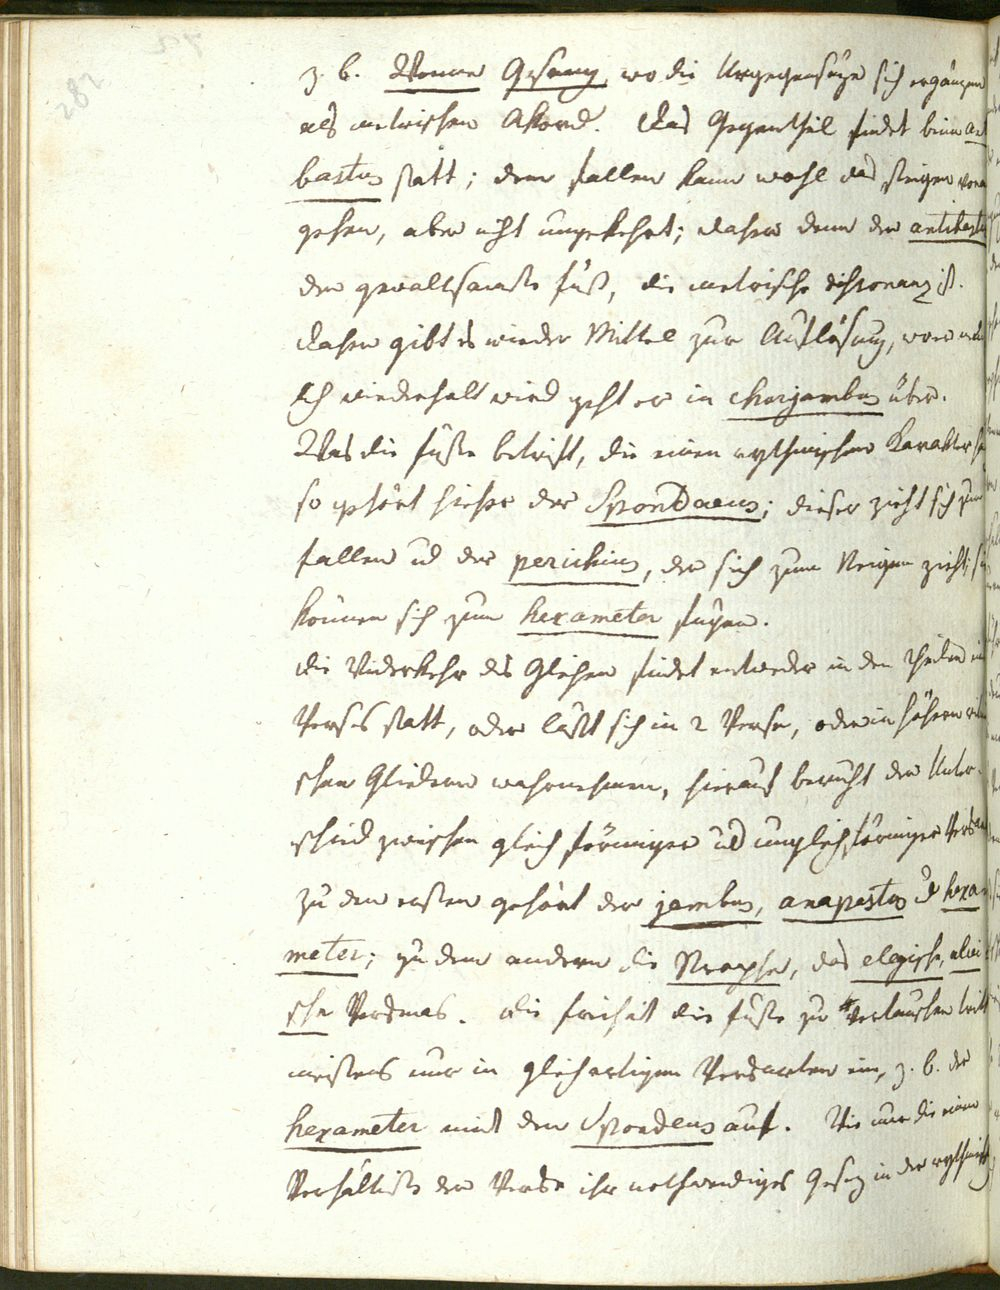 282
z. b. Wonne Gesang, wo die Urgegensäze sich ergänzen
als metrischen Akord. Das Gegentheil findet beim anti
bastus statt; dem fallen kann wohl das steigen voran
gehen, aber nicht umgekehrt; daher denn der antibastus
der gewaltsamste fuß, die metrische dissonanz ist.
Daher gibt es wieder Mittel zur Auflösung, wenn
lich wiederholt wird geht er in choriambus über.
Was die füße betrift, die einen rythmischen Karakter
so gehört hieher der Spondaeus; dieser zieht sich zum
fallen und der perichius, der sich zum steigen zieht; sie
können sich zum hexameter fügen.
Die Widerkehr des Gleichen findet entweder in den theilen
Verses statt, oder läßt sich in 2 Verse, oder in höhern
schen Gliedern wahrnehmen, hierauf beruht der Unter-
schied zwischen gleich förmiger und ungleich förmiger
Zu den ersten gehört der jambus, anapestus und hexa-
meter; zu dem andern die Strophe, das elegische, alcäi
sche Versmas. Die freiheit die füße zu vertauschen tritt
meistens nur in gleichartigen Versarten ein, z. b. der
hexameter nimt den Spondeus auf. Wie nun die
Verhältniße der Verse ihr nothwendiges Gesez in der